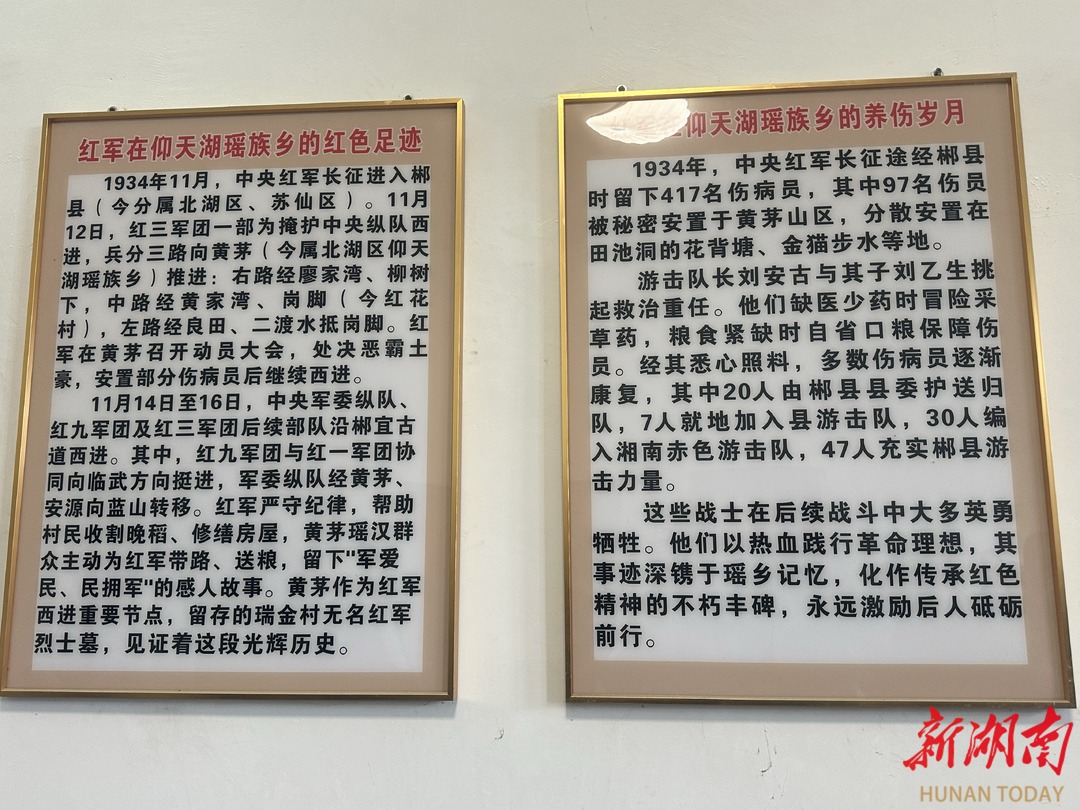 红军在仰天湖瑶族乡的红色足迹
1934年11月，中央红军长征进入郴
县（今分属北湖区、苏仙区）。11月
12日，红三军团一部为掩护中央纵队西
进，兵分三路向黄茅（今属北湖区仰天
湖瑶族乡）推进：右路经廖家湾、柳树
下，中路经黄家湾、岗脚（今红花
村），左路经良田、二渡水抵岗脚。红
军在黄茅召开动员大会，处决恶霸土
豪，安置部分伤病员后继续西进。
11月14日至16日，中央军委纵队、
红九军团及红三军团后续部队沿郴宜古
道西进。其中，红九军团与红一军团协
同向临武方向挺进，军委纵队经黄茅、
安源向蓝山转移。红军严守纪律，帮助
村民收割晚稻、修缮房屋，黄茅瑶汉群
众主动为红军带路、送粮，留下"军爱
民、民拥军"的感人故事。黄茅作为红军
西进重要节点，留存的瑞金村无名红军
烈士墓，见证着这段光辉历史。
仰天湖瑶族乡的养伤岁月
1934年，中央红军长征途经郴县
时留下417名伤病员，其中97名伤员
被秘密安置于黄茅山区，分散安置在
田池洞的花背塘、金猫步水等地。
游击队长刘安古与其子刘乙生挑
起救治重任。他们缺医少药时冒险采
草药，粮食紧缺时自省口粮保障伤
员。经其悉心照料，多数伤病员逐渐
康复，其中20人由郴县县委护送归
队，7人就地加入县游击队，30人编
入湘南赤色游击队，47人充实郴县游
击力量。
这些战士在后续战斗中大多英勇
牺牲。他们以热血践行革命理想，其
事迹深镌于瑶乡记忆，化作传承红色
精神的不朽丰碑，永远激励后人砥砺
前行。
新湖南
HUNAN TODAY